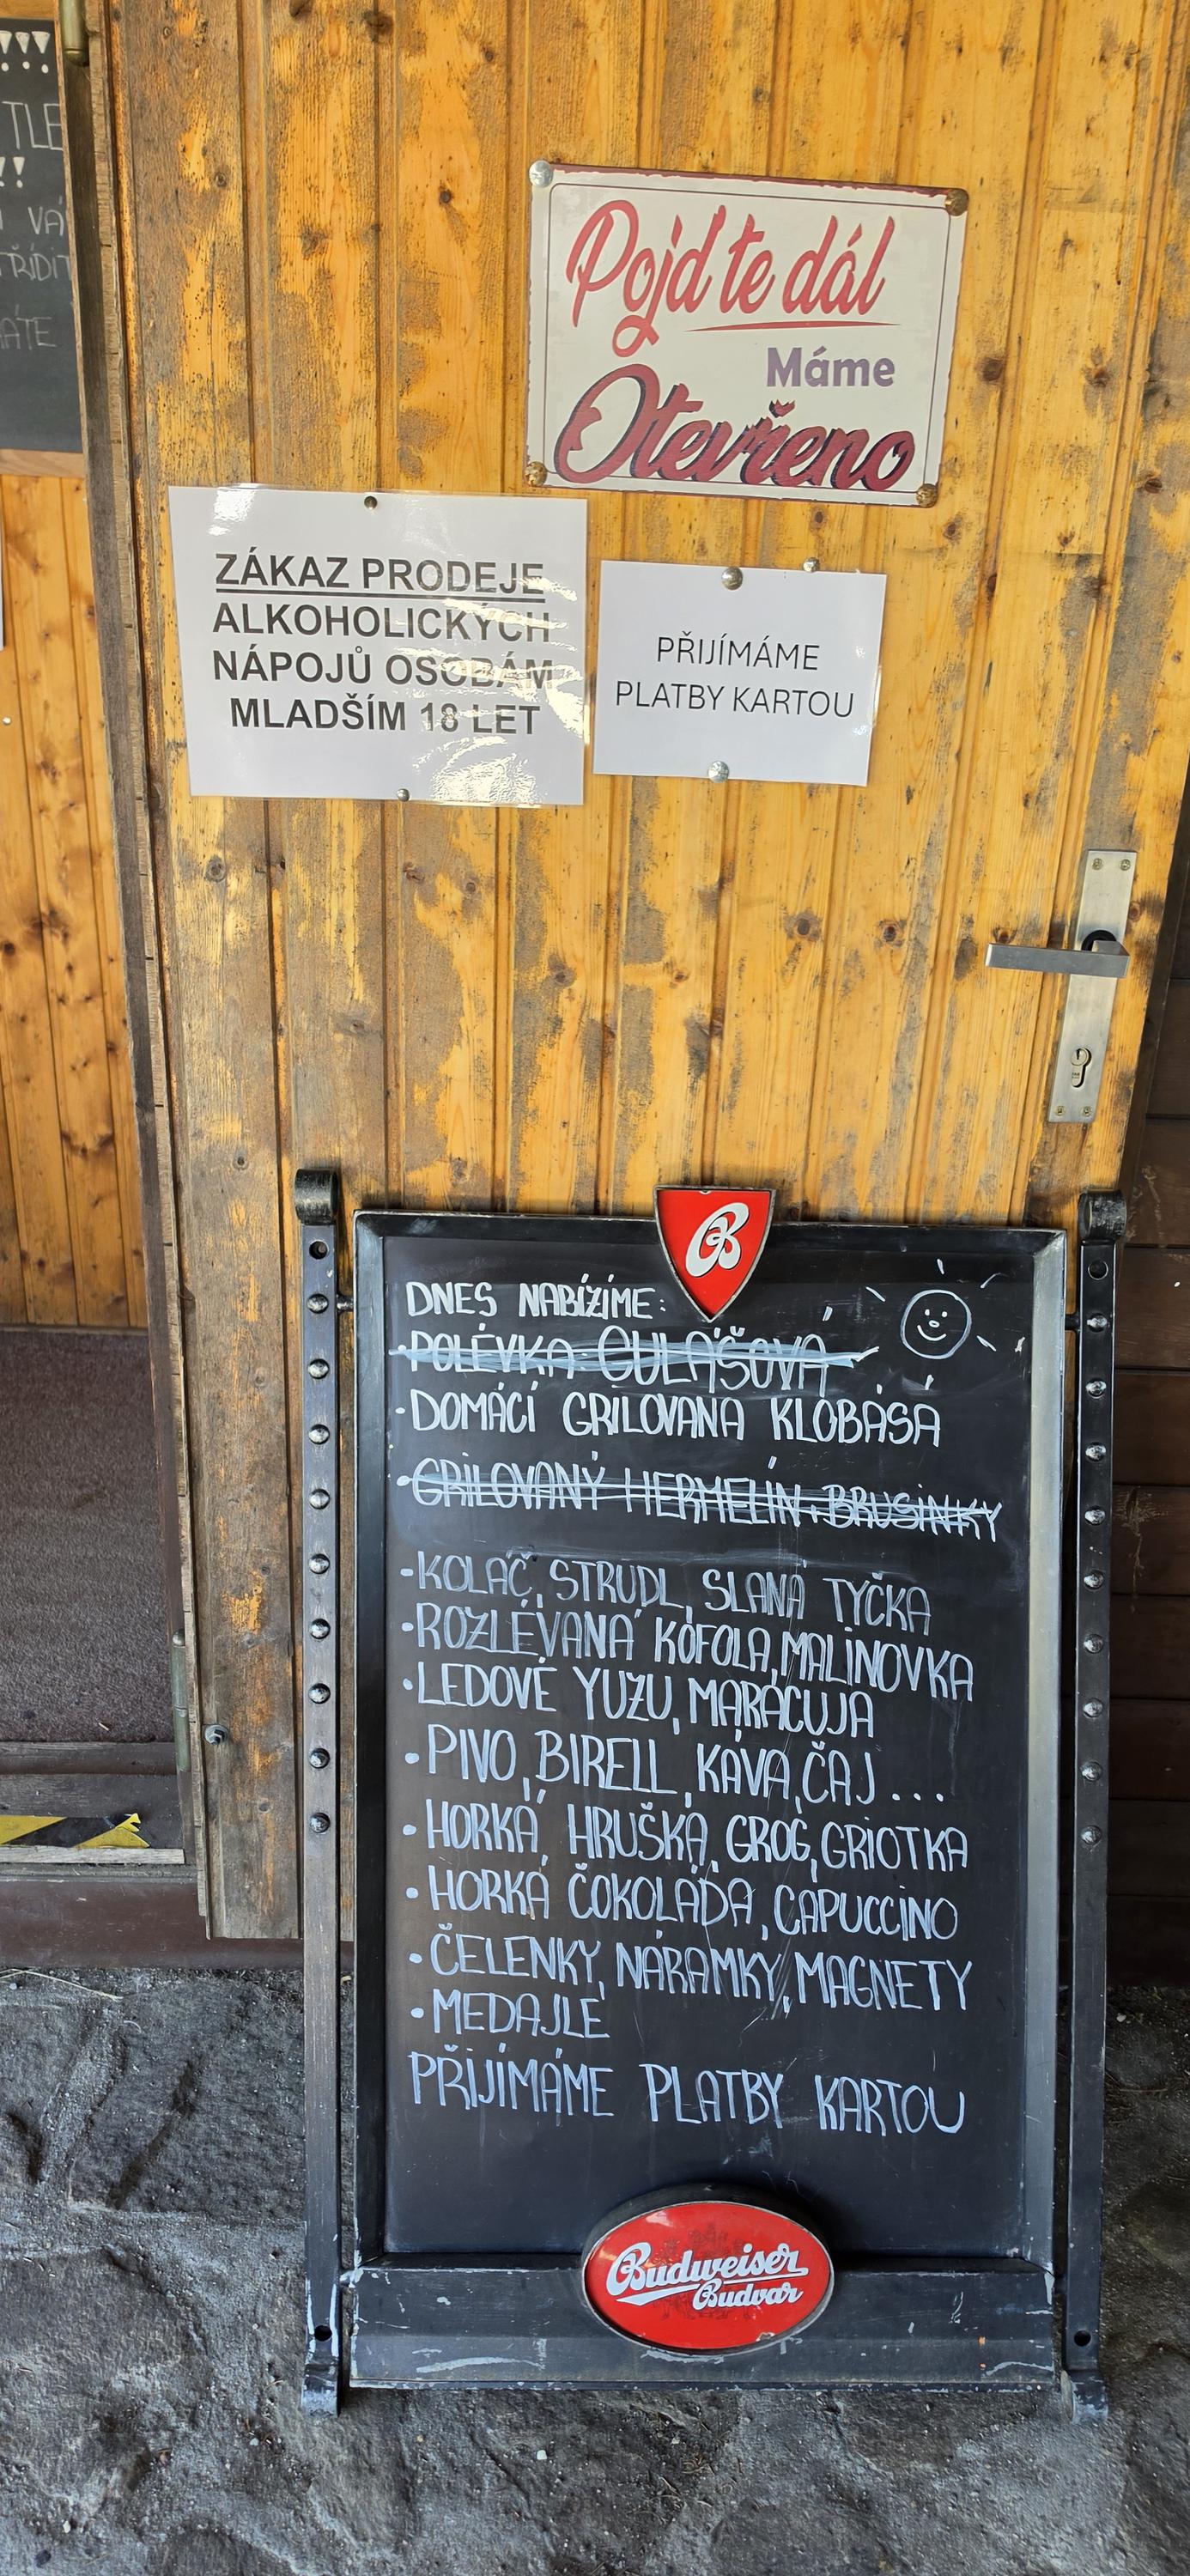 TLE
!!
VÁ
TŘÍDIT
ÁTE
Pojďte dál
Máme
Otevřeno
ZÁKAZ PRODEJE
ALKOHOLICKÝCH
NÁPOJŮ OSOBÁM
MLADŠÍM 18 LET
PŘIJÍMÁME
PLATBY KARTOU
B
DNES NABÍZÍME:
·POLÉVKA GULÁŠOVÁ
·DOMÁCÍ GRILOVANÁ KLOBÁSA
·GRILOVANÝ HERMELÍN, BRUSINKY
·KOLÁČ, STRUDL, SLANÁ TYČKA
·ROZLÉVANÁ KOFOLA, MALINOVKA
·LEDOVÉ YUZU, MARACUJA
·PIVO, BIRELL, KÁVA, ČAJ...
·HORKÁ HRUŠKA, GROG, GRIOTKA
·HORKÁ ČOKOLÁDA, CAPUCCINO
·ČELENKY, NÁRAMKY, MAGNETY
·MEDAJLE
PŘIJÍMÁME PLATBY KARTOU
Budweiser
Budvar